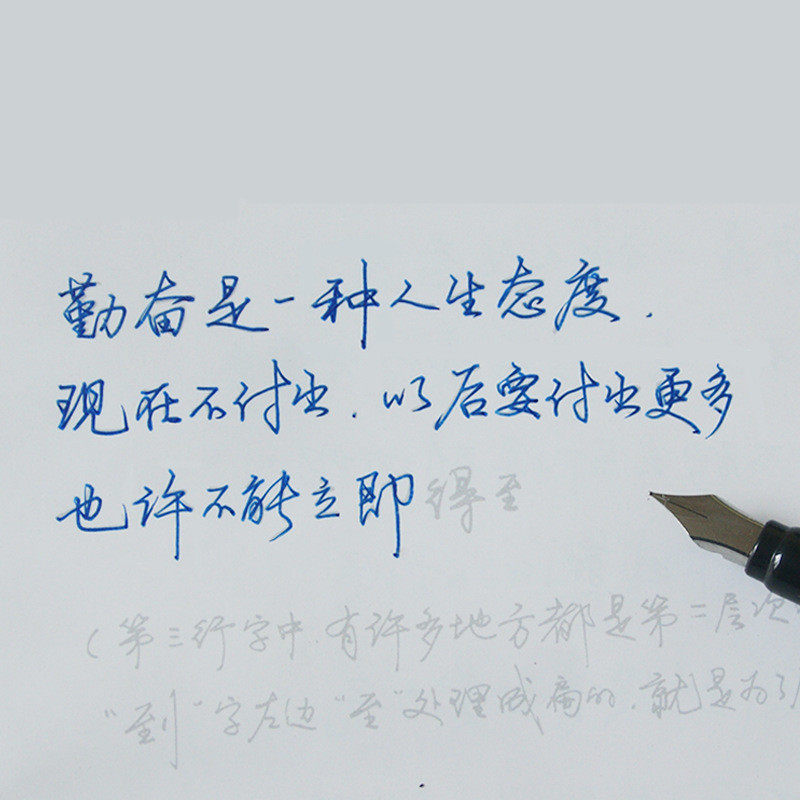 勤奋是一种人生态度.
现在不付出.以后要付出更多
也许不能立即得至
(第三行字中.有许多地方都是第二层次
"到"字左边"至"处理成扁的.就是为了